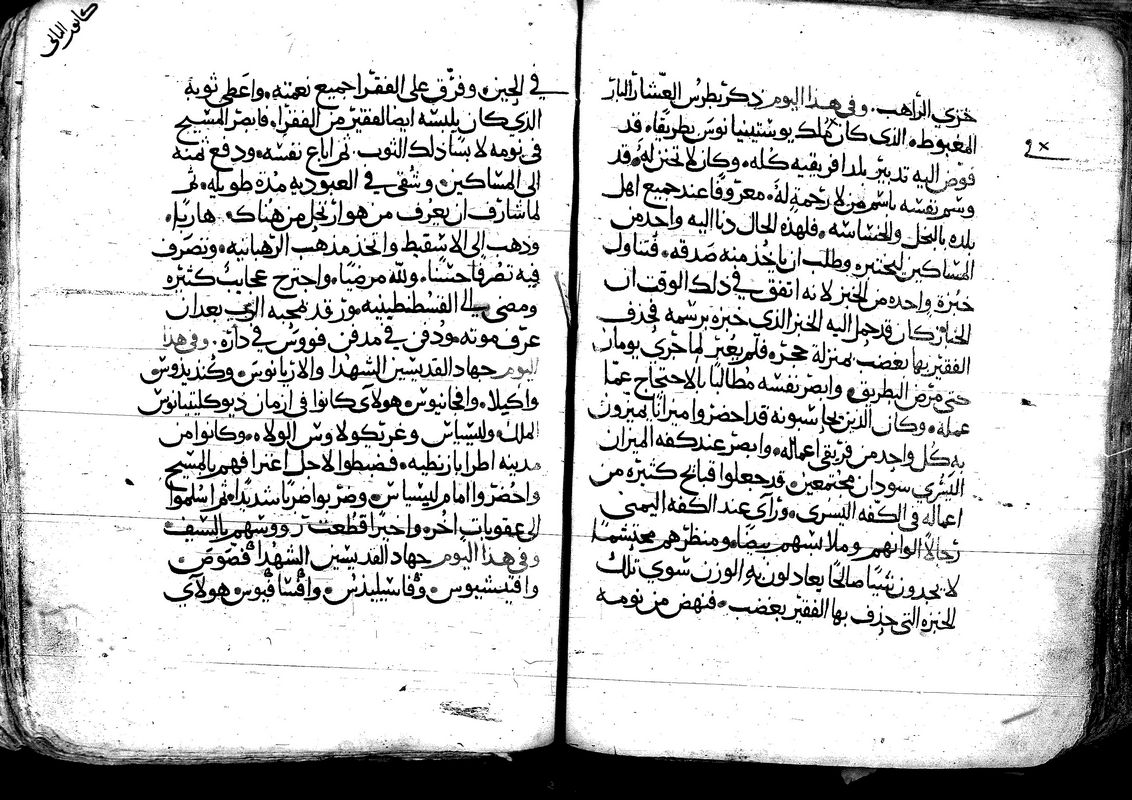 خزي الراهب. وفي هذا اليوم ذكر بطرس العشار البار
المغبوط. الذي كان ملك يوستينيانوس بطريقا. قد
فوض اليه تدبير بلد افريقيه كله. وكان لا تحنن له. قد
وسم نفسه باسم من لا رحمة له. معروفا عند جميع اهل
بلده بالبخل والخساسه. فلهذه الحال دنا اليه واحد من
المساكين ليختبره وطلب ان ياخذ منه صدقه. فتناول
خبزة واحده من الخبز لانه اتفق في ذلك الوقت ان
الخباز كان قد حمل اليه الخبز الذي خبزه برسمه فحذف
الفقير بها بغضب بمنزلة حجره. فلم يعبر لما جري يومان
حتى مرض البطريق. وابصر نفسه مطالبا بالاحتجاج عما
عمله. وكان الذين يحاسبونه قد احضروا ميزانا يميزون
به كل واحد من فريقي اعماله. وابصر عند كفه الميزان
اليسري سودان مجتمعين. قد جعلوا قبائح كثيره من
اعماله في الكفه اليسري. ورآي عند الكفه اليمنى
رجالا الوانهم وملابسهم بيضا. ومنظرهم محتشما
لا يجدون شيا صالحا يعادلون به الوزن سوي تلك
الخبزه التي حذف بها الفقير بغضب. فنهض من نومه
كانون الثاني
في الحين. وفرق على الفقرا جميع نعمته. واعطى ثوبه
الذي كان يلبسه ايضا لفقير من الفقرا. فابصر المسيح
في نومه لابسا ذلك الثوب. ثم اباع نفسه. ودفع ثمنه
الى المساكين. وشقي في العبوديه مدة طويله. ثم
لما شارف ان يعرف من هو ارتحل من هناك. هاربا.
وذهب الى الاسقيط واتخذ مذهب الرهبانيه. وتصرف
فيه تصرفا حسنا. ولله مرضيا. واجترح عجايب كثيره
ومضى الى القسطنطينيه
عرف موته. ودفن في مدفن فووس في داره. وفي هذا
اليوم جهاد القديسين الشهدا والاريانوس وكنديدوس
واكيلا. وافجانيوس هولاي كانوا في ازمان ديوكليتيانوس
الملك وليسياس وغريكولاوس الولاه. وكانوا من
مدينه اطرابازنطيه. فضبطوا لاجل اعترافهم بالمسيح
واحضروا امام ليسياس. وضربوا ضربا شديدا. ثم اسلموا
الى عقوبات اخر. واخيرا قطعت رووسهم بالسيف
وفي هذا اليوم جهاد القديسين الشهدا
هولاي